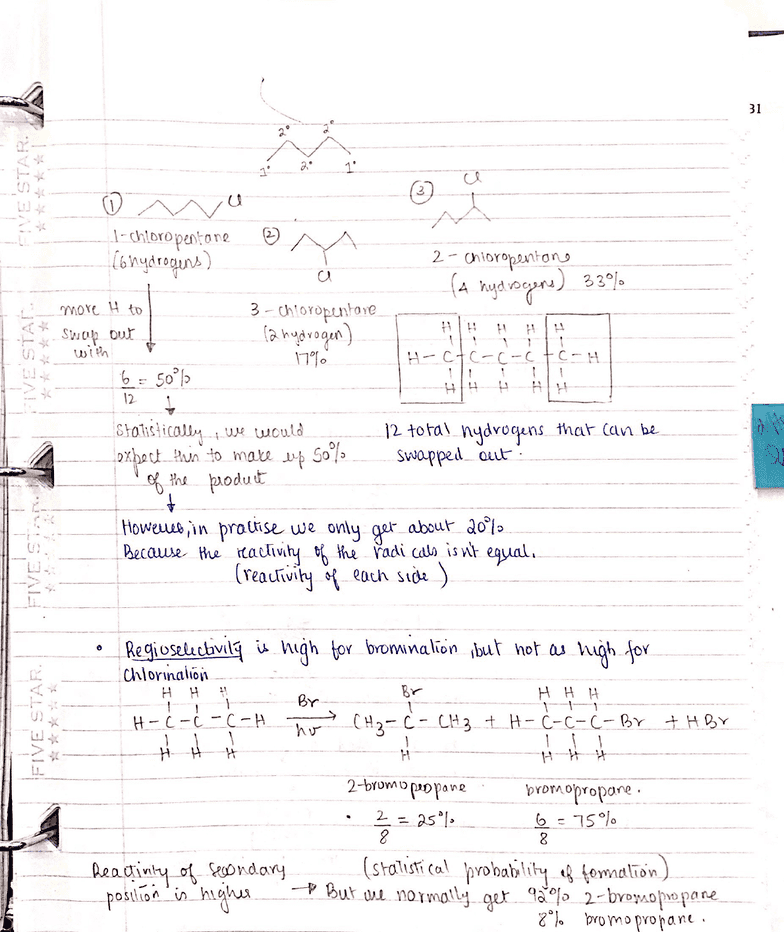 31
2° 2°
1° 2° 1°
① Cl
1-chloropentane
(6 hydrogens)
②
Cl
3-chloropentane
(2 hydrogen)
17%
③ Cl
2-chloropentane
(4 hydrogens) 33%
more H to
swap out
with
6/12 = 50%
Statistically, we would
expect this to make up 50%
of the product
H H H H H
H-C-C-C-C-C-H
H H H H H
12 total hydrogens that can be
swapped out.
However, in practise we only get about 20%
Because the reactivity of the radicals isn't equal.
(reactivity of each side)
• Regioselectivity is high for bromination, but not as high for
Chlorination
H H H Br Br H H H
H-C-C-C-H hν → CH3-C-CH3 + H-C-C-C-Br + HBr
H H H H H H H
2-bromopropane bromopropane.
• 2/8 = 25% 6/8 = 75%
(statistical probability of formation)
Reactivity of secondary
position is higher → But we normally get 92% 2-bromopropane
8% bromopropane.
FIVE STAR.
FIVE STAR.
FIVE STAR.
FIVE STAR.